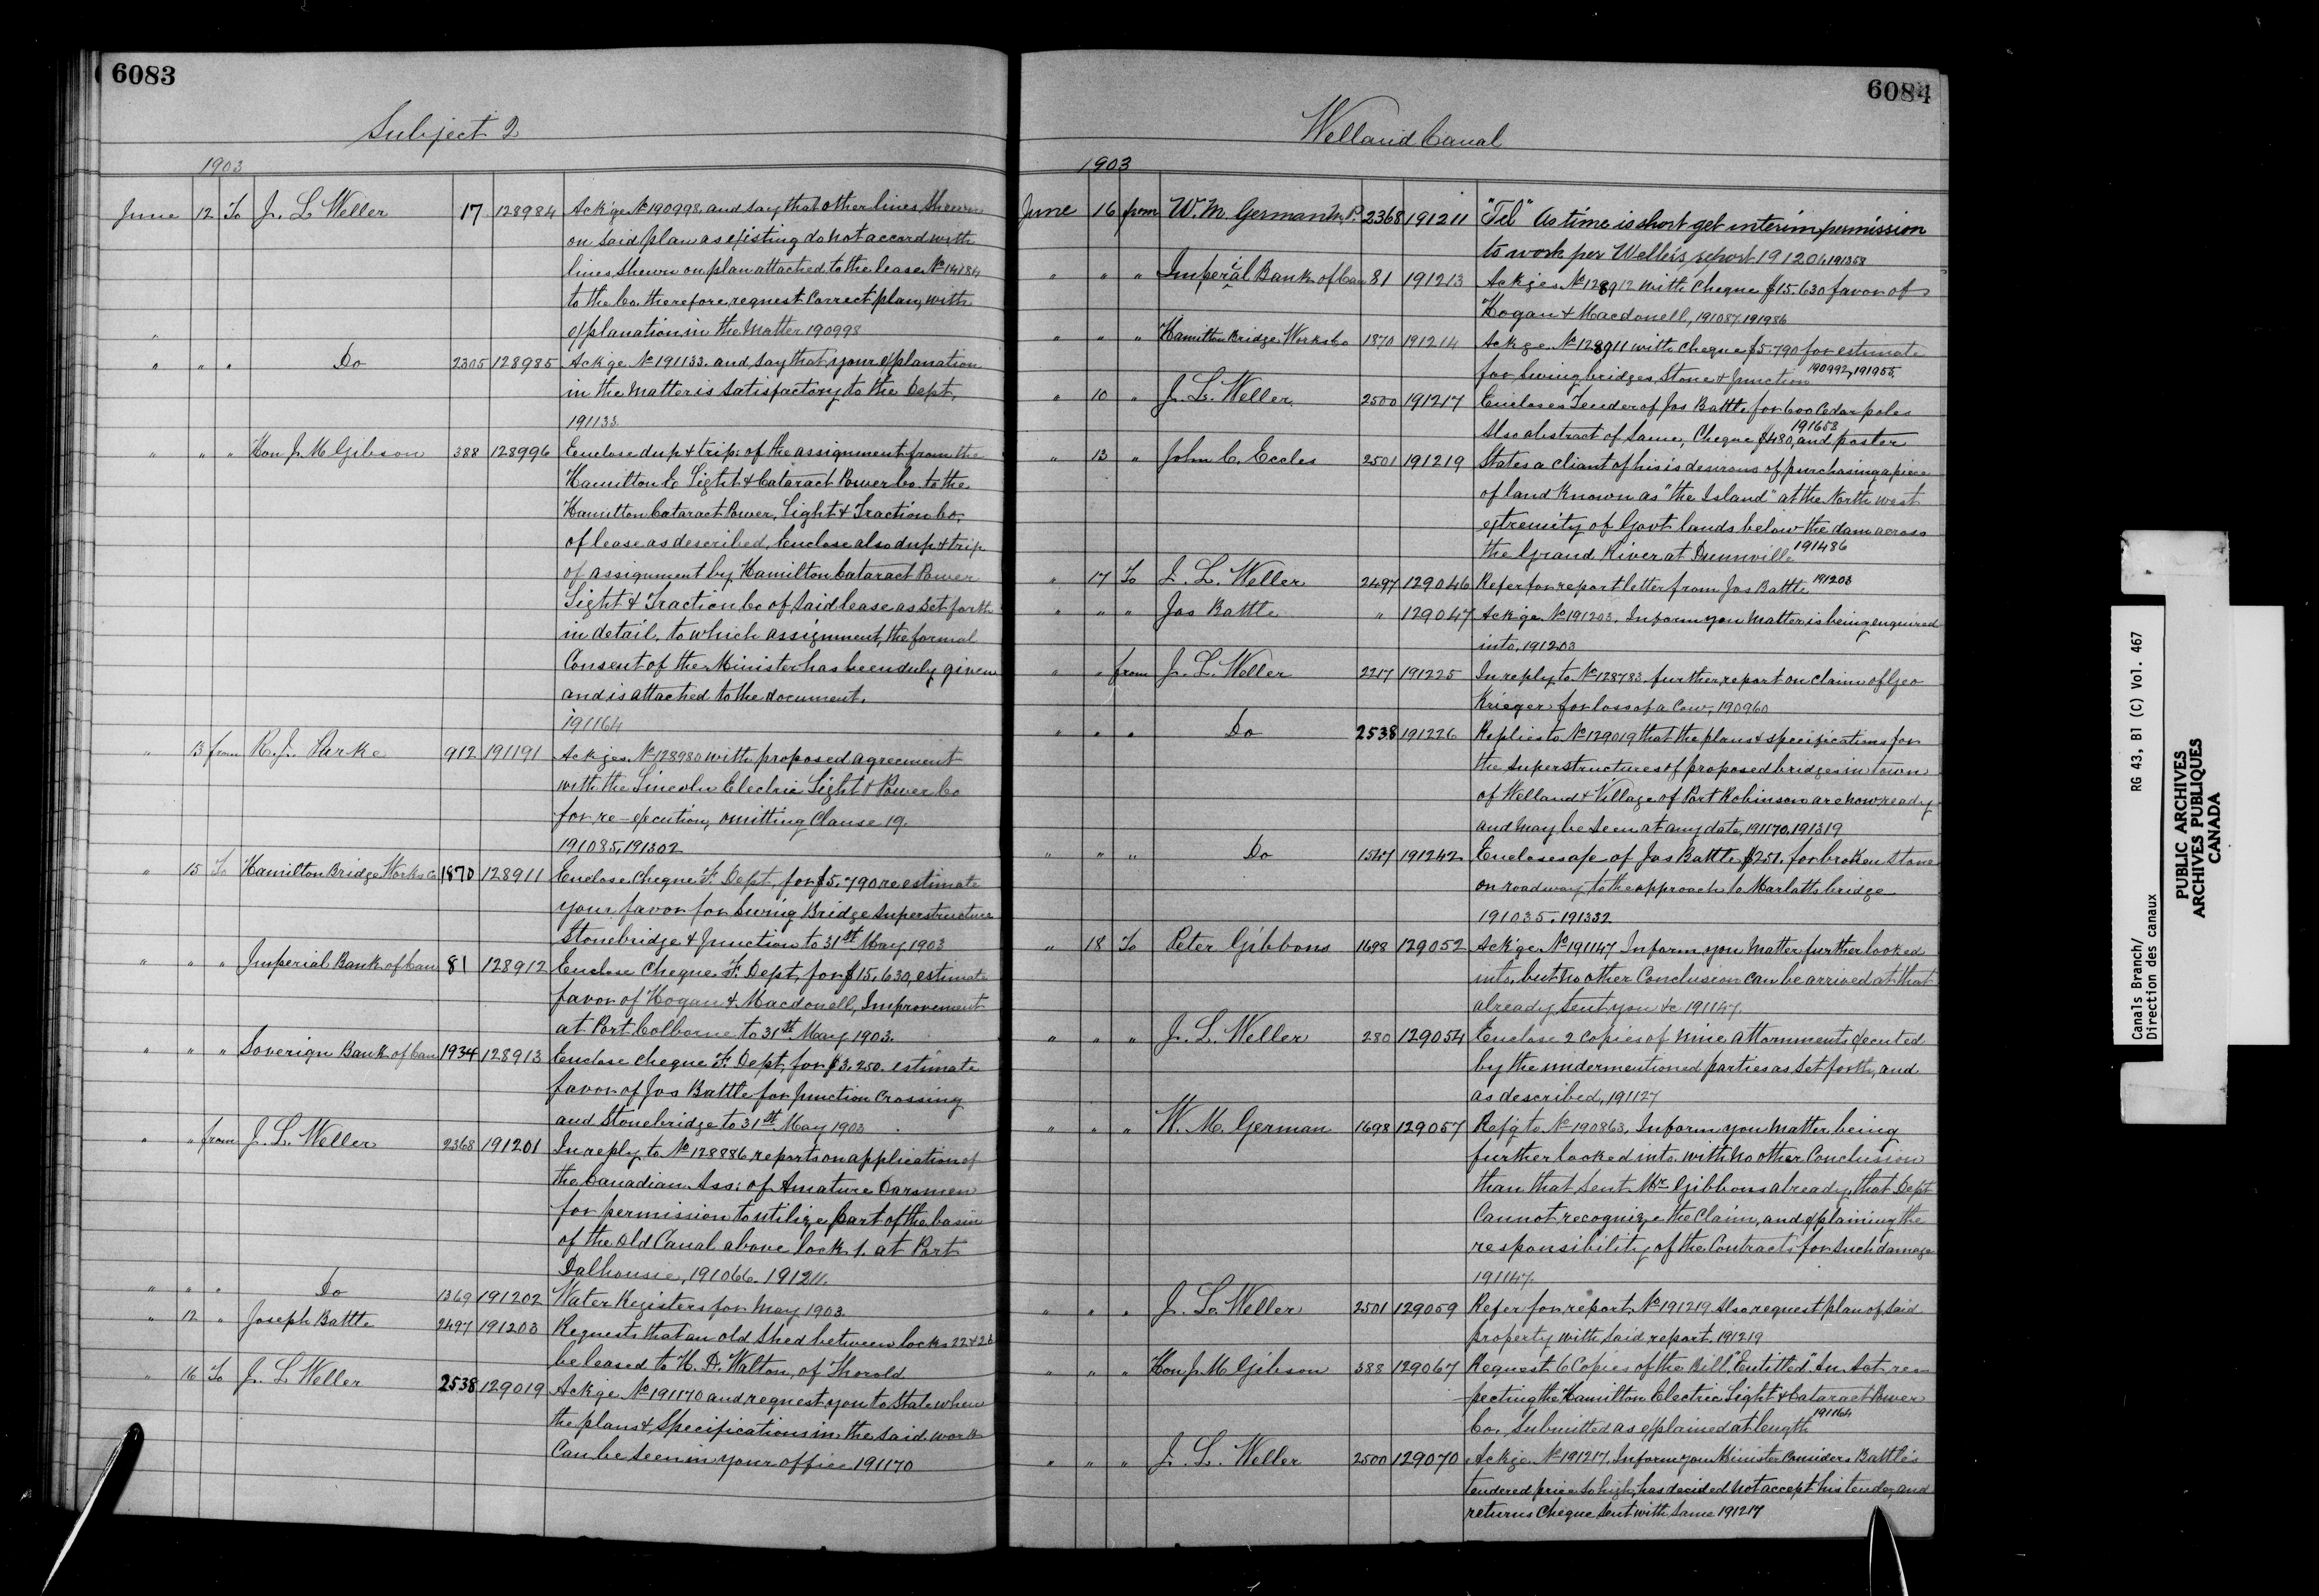 6083
Subject 2
1903
June 12 To J. L. Weller 17 128984 Ack'ge No 190998, and say that other lines shewn
on said plan as existing do not accord with
lines shewn on plan attached to the lease No 14184
to the Co. therefore, request correct plan, with
explanation in the matter 190998
" " " Do 2305 128985 Ack'ge No 191133. and say that your explanation
in the matter is satisfactory to the Dept,
191133
" " " Hon J. M Gibson 388 128996 Enclose dup & trip: of the assignment from the
Hamilton E Light & Cataract Power Co. to the
Hamilton Cataract Power, Light & Traction Co.
of lease as described, Enclose also dup & trip
of assignment by Hamilton Cataract Power
Light & Traction Co of said lease as set forth
in detail, to which assignment, the formal
Consent of the Minister has been duly given
and is attached to the document.
191164
" 13 from R. J. Parke 912 191191 Ackges No 128980 with proposed agreement
with the Lincoln Electric Light & Power Co
for re-execution, omitting Clause 19.
191085, 191302
" 15 To Hamilton Bridge Works Co 1870 128911 Enclose Cheque F. Dept, for $5,790 re estimate
your favor for Swing Bridge Superstructure
Stonebridge & Junction to 31st May 1903
" " " Imperial Bank of Can 81 128912 Enclose Cheque F. Dept, for $15,630, estimate
favor of Hogan & Macdonell, Improvement
at Port Colborne to 31st May 1903.
" " " Soverign Bank of Can 1934 128913 Enclose cheque F. Dept, for $3.250. estimate
favor of Jos Battle for Junction Crossing
and Stonebridge to 31st May 1903
" " from J. L. Weller 2368 191201 In reply to No 128886 reports on application of
the Canadian Ass: of Amature Oarsmen
for permission to utilize part of the basin
of the old Canal above lock 1. at Port
Dalhousie, 191066. 191211.
" " " Do 1369 191202 Water Registers for May 1903
" 12 " Joseph Battle 2497 191203 Requests that an old shed between locks 22 & 26
be leased to H. D. Walton, of Thorold
" 16 To J. L. Weller 2538 129019 Ackge No 191170 and request you to State when
the plans & Specifications in the said work
Can be seen in your office 191170
6084
Welland Canal
1903
June 16 from W. M. German M.P. 2368 191211 "Tel" As time is short get interim permission
to work per Weller's report 191206, 191358
" " " Imperial Bank of Can 81 191213 Ackges No 128912 with Cheque $15.630 favor of
Hogan & Macdonell, 191087, 191986
" " " Hamilton Bridge Works Co 1870 191214 Ackge No 128911 with Cheque $5.790 for estimate
for Swing bridges, Stone & Junction 190992, 191955
" 10 " J. L. Weller 2500 191217 Encloses Tender of Jos Battle for 600 Cedar poles
Also abstract of Same, Cheque $480, and poster 191653
" 13 " John C. Eccles 2501 191219 States a client of his is desirous of purchasing a piece
of land known as "the Island" at the North west
extremity of Govt lands below the dam across
the Grand River at Dunnville 191486
" 17 To J. L. Weller 2497 129046 Refer for report letter from Jos Battle 191203
" " " Jos Battle " 129047 Ack'ge No 191203. Inform you matter is being enquired
into, 191203
" " from J. L. Weller 2217 191225 In reply to No 128783 further report on claim of Geo
Krieger for loss of a Cow, 190960
" " " Do 2538 191226 Replies to No 129019 that the plans & specifications for
the superstructures of proposed bridges in town
of Welland & Village of Port Robinson are now ready
and may be seen at any date, 191170, 191319
" " " Do 1547 191242 Encloses a/c of Jos Battle $251. for broken stone
on roadway to the approach to Marlatts bridge
191035. 191332
" 18 To Peter Gibbons 1698 129052 Ackge No 191147 Inform you Matter further looked
into, but no other Conclusion can be arrived at that
already sent you &c 191147.
" " " J. L. Weller 280 129054 Enclose 2 copies of nine attornments executed
by the undermentioned parties as set forth, and
as described, 191127
" " " W. M. German 1698 129057 Refg to No 190863, Inform you matter being
further looked into. with no other Conclusion
than that sent Mr Gibbons already, that Dept
Cannot recognize the Claim, and explaining the
responsibility of the Contracts for such damage
191147.
" " " J. L. Weller 2501 129059 Refer for report No 191219 Also request plan of said
property with said report. 191219
" " " Hon J. M Gibson 388 129067 Request 6 Copies of the Bill, "Entitled," An Act res
pecting the Hamilton Electric Light & Cataract Power
Co., submitted as explained at length 191164
" " " J. L. Weller 2500 129070 Ackge No 191217. Inform you Minister Considers Battle's
tendered price so high, has decided not accept his tender, and
returns Cheque sent with same 191217
Canals Branch/
Direction des canaux
RG 43, B1 (C) Vol. 467
PUBLIC ARCHIVES
ARCHIVES PUBLIQUES
CANADA